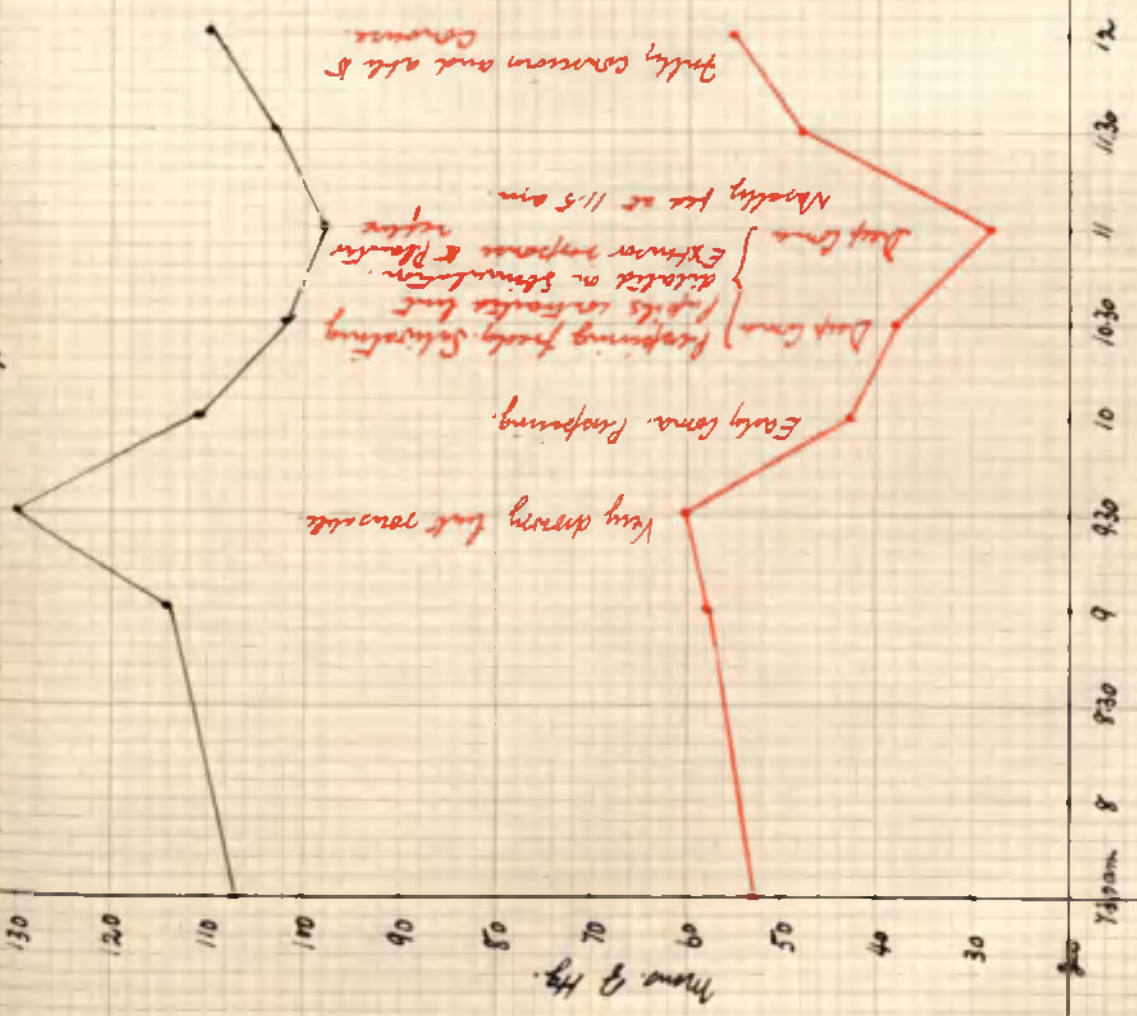 Mms. of Hg.
130
120
110
100
90
80
70
60
50
40
30
7.30am 8 8.30 9 9.30 10 10.30 11 11.30 12
Very drowsy but rousable
Early Coma. Perspiring.
Deep Coma } Perspiring freely. Salivating
Pupils contracted but
dilated on stimulation.
Deep Coma } Extensor response to Plantar
reflex
Nasally fed at 11.5 am
Fully conscious and able to
converse.